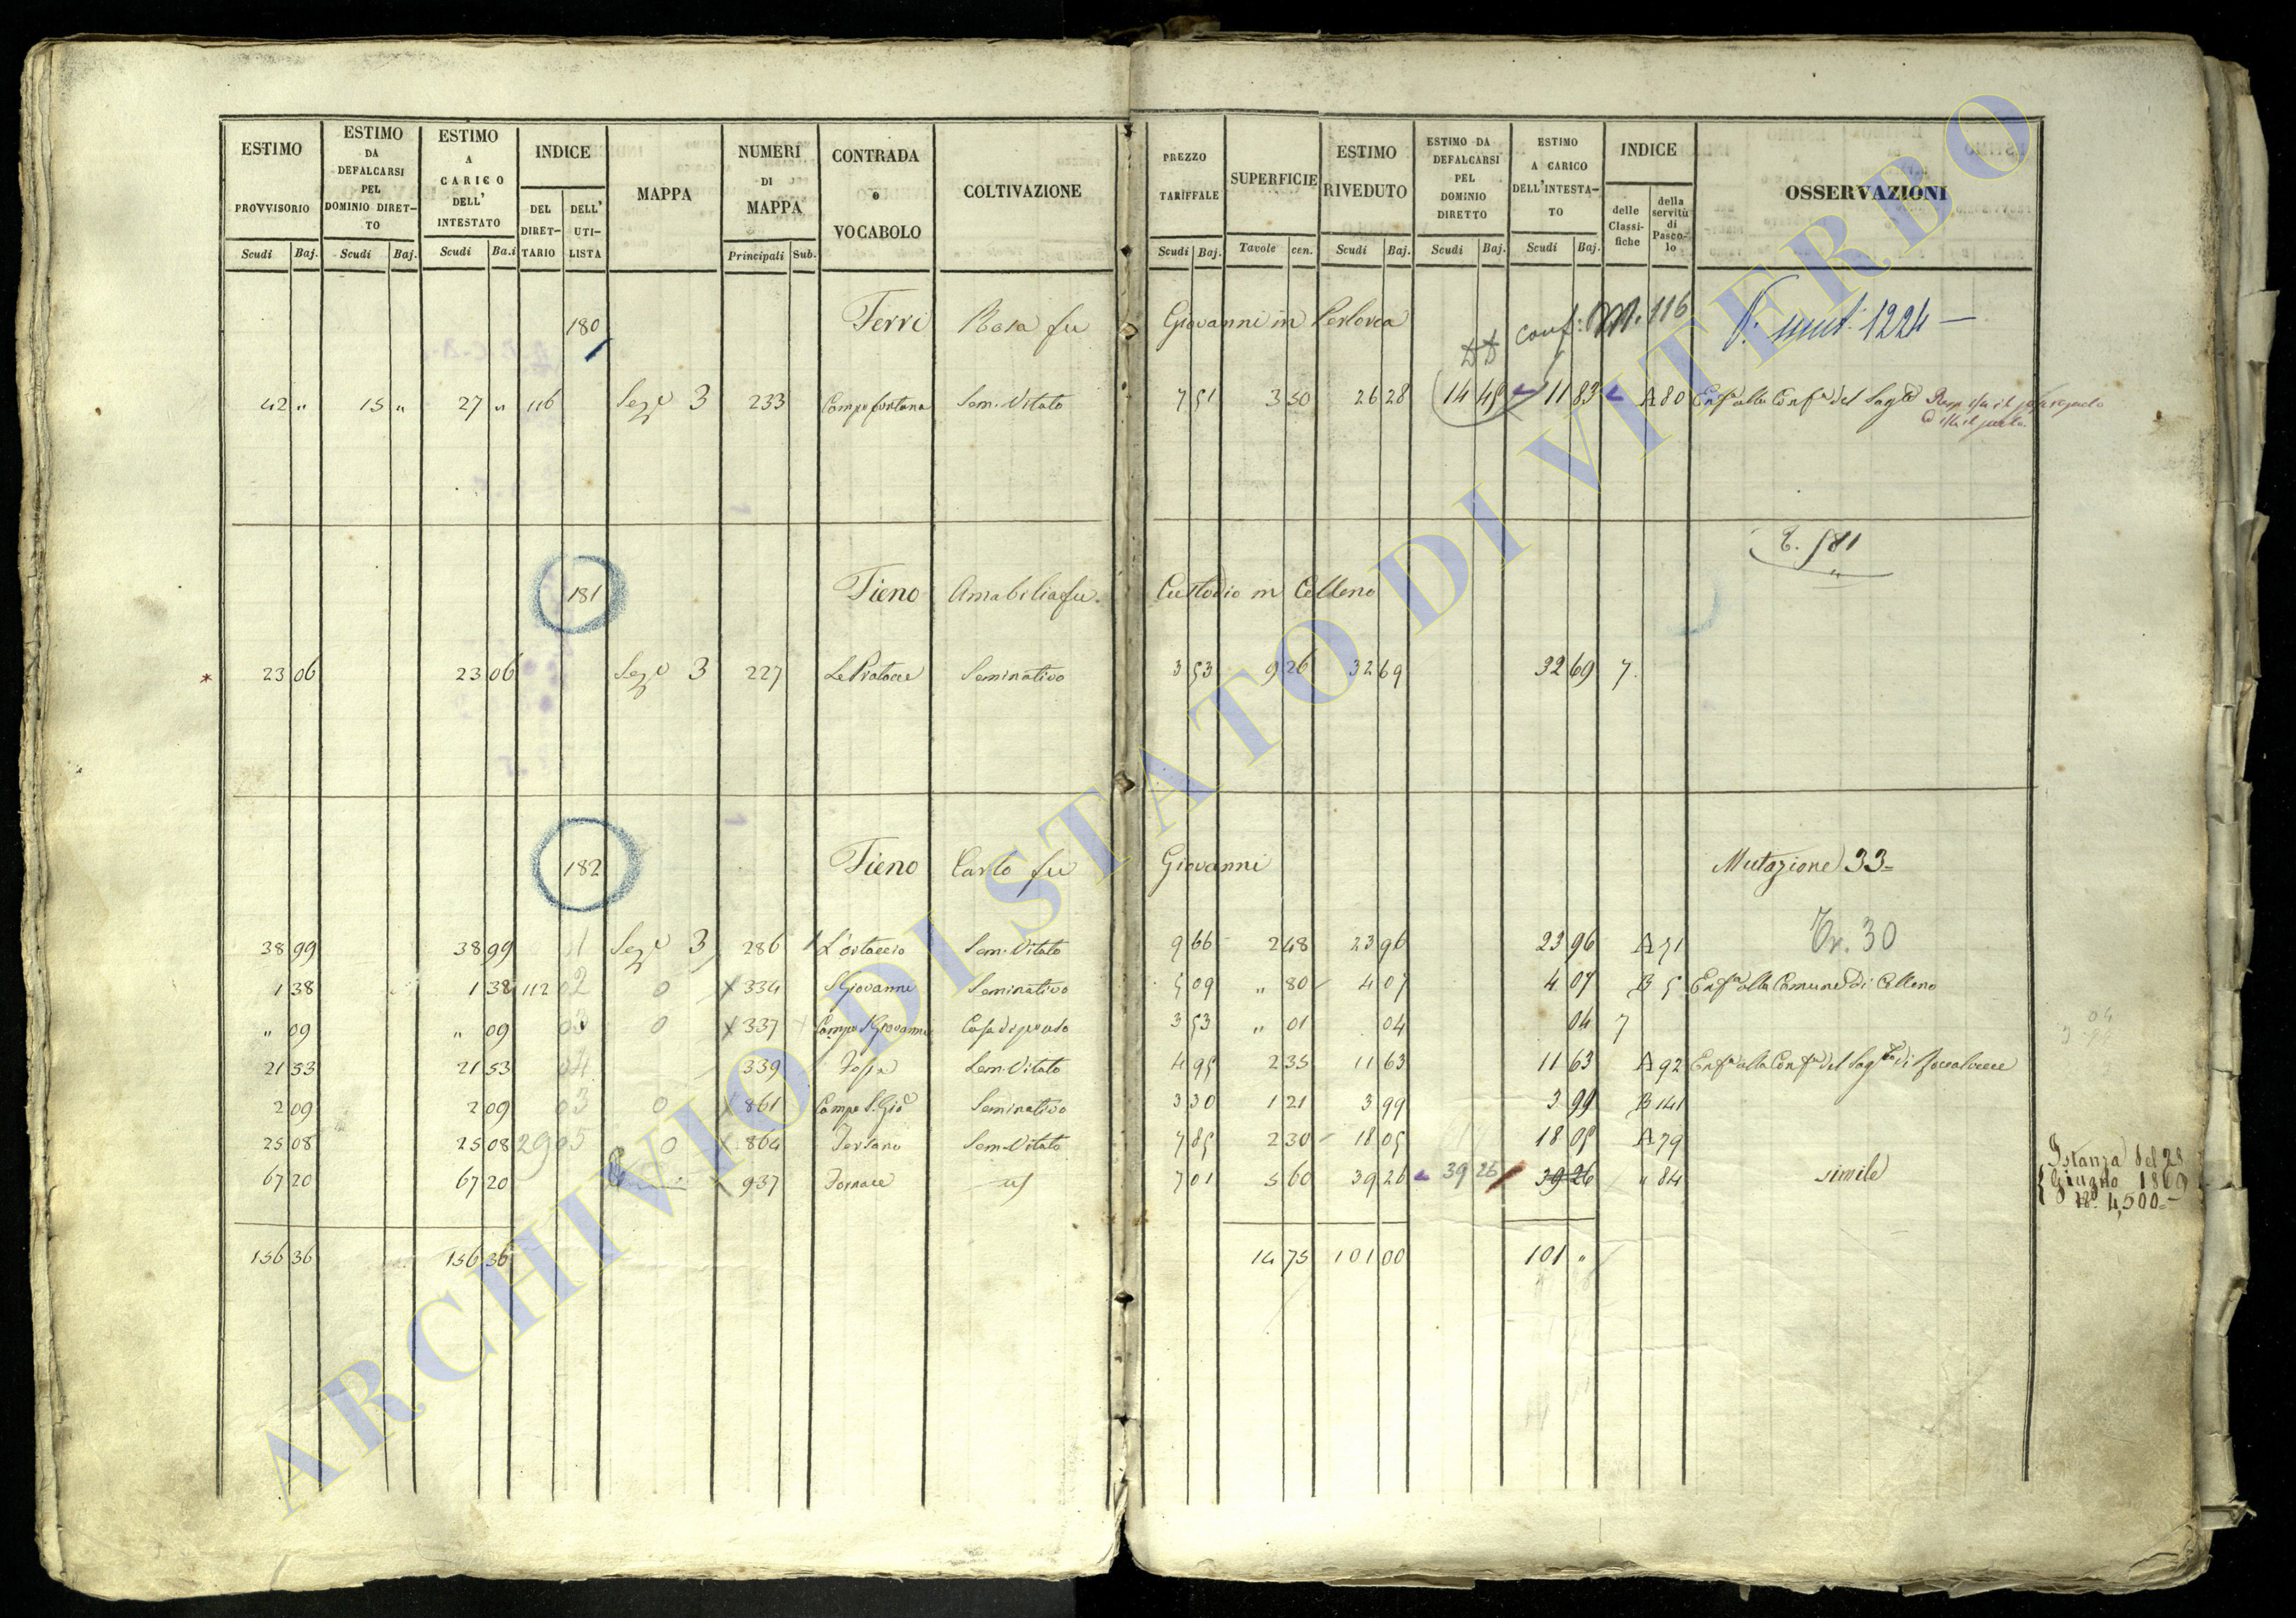 ESTIMO PROVVISORIO Scudi Baj.
ESTIMO DA DEFALCARSI PEL DOMINIO DIRETTO Scudi Baj.
ESTIMO A CARICO DELL' INTESTATO Scudi Ba.i
INDICE DEL DIRET-TARIO DELL' UTI-LISTA
MAPPA
NUMERI DI MAPPA Principali Sub.
CONTRADA o VOCABOLO
COLTIVAZIONE
PREZZO TARIFFALE Scudi Baj.
SUPERFICIE Tavole cen.
ESTIMO RIVEDUTO Scudi Baj.
ESTIMO DA DEFALCARSI PEL DOMINIO DIRETTO Scudi Baj.
ESTIMO A CARICO DELL'INTESTA-TO Scudi Baj.
INDICE delle Classi-fiche della servitù di Pasco-lo
OSSERVAZIONI
180 Ferri Rosa fu Giovanni in conf: M. 116 1224 —
42 " 15 " 27 " 116 Sez.e 3 233 Campo fontana Sem. Vitato 7 51 3 50 26 28 14 45 11 83 A 80 Enf.a alla Conf.a del Sag.to
T. 581
181 Fieno Amabilia fu Custodio in Celleno
23 06 23 06 Sez.e 3 227 Le Pratacce Seminativo 3 53 9 26 32 69 32 69 7
182 Fieno Carlo fu Giovanni Mutazione 33=
Tr. 30
38 99 38 99 01 Sez.e 3 286 1 L'ortaccio Sem. Vitato 9 66 2 48 23 96 23 96 A 71
1 38 1 38 112 02 0 X 334 S. Giovanni Seminativo 5 09 " 80 4 07 4 07 B 5 Enf.a alla Comune di Celleno
" 09 " 09 03 0 X 337 Campo S. Giovanni Casa diruta 3 53 " 01 04 04 7
21 53 21 53 04 339 Fossa Sem. Vitato 4 95 2 35 11 63 11 63 A 92 Enf.a alla Conf.a del Sag.to di Roccalvecce
2 09 2 09 03 0 X 861 Campo S. Gio.e Seminativo 3 30 1 21 3 99 3 99 B 141
25 08 25 08 290 5 0 X 864 Versano Sem. Vitato 7 85 2 30 18 05 18 05 A 79
67 20 67 20 X 937 Fornace 7 01 5 60 39 26 39 26 39 26 " 84 simile
Istanza del 28
Giugno 1869
N° 4,500=
156 36 156 36 14 75 101 00 101 "
ARCHIVIO DI STATO DI VITERBO